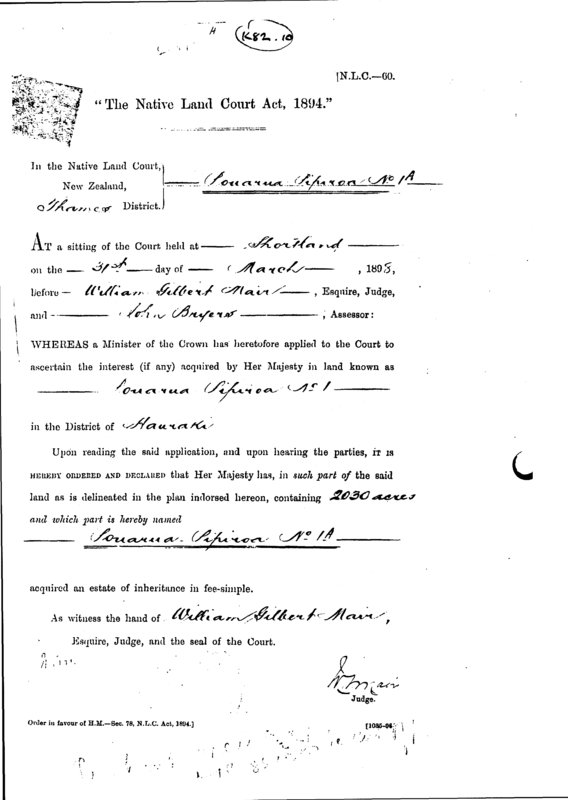 H
K82.10
[N.L.C.—60.
"The Native Land Court Act, 1894."
In the Native Land Court,
New Zealand,
Thames District.
Pipiroa No 1A
AT a sitting of the Court held at — Shortland —
on the — 31st — day of — March —, 1898,
before — William Gilbert Mair —, Esquire, Judge,
and — John Bryers —, Assessor:
WHEREAS a Minister of the Crown has heretofore applied to the Court to
ascertain the interest (if any) acquired by Her Majesty in land known as
Pipiroa No 1
in the District of Hauraki
Upon reading the said application, and upon hearing the parties, IT IS
HEREBY ORDERED AND DECLARED that Her Majesty has, in such part of the said
land as is delineated in the plan indorsed hereon, containing 2030 acres
and which part is hereby named
Pipiroa No 1A
acquired an estate of inheritance in fee-simple.
As witness the hand of William Gilbert Mair,
Esquire, Judge, and the seal of the Court.
W Mair
Judge.
Order in favour of H.M.—Sec. 78, N.L.C. Act, 1894.]